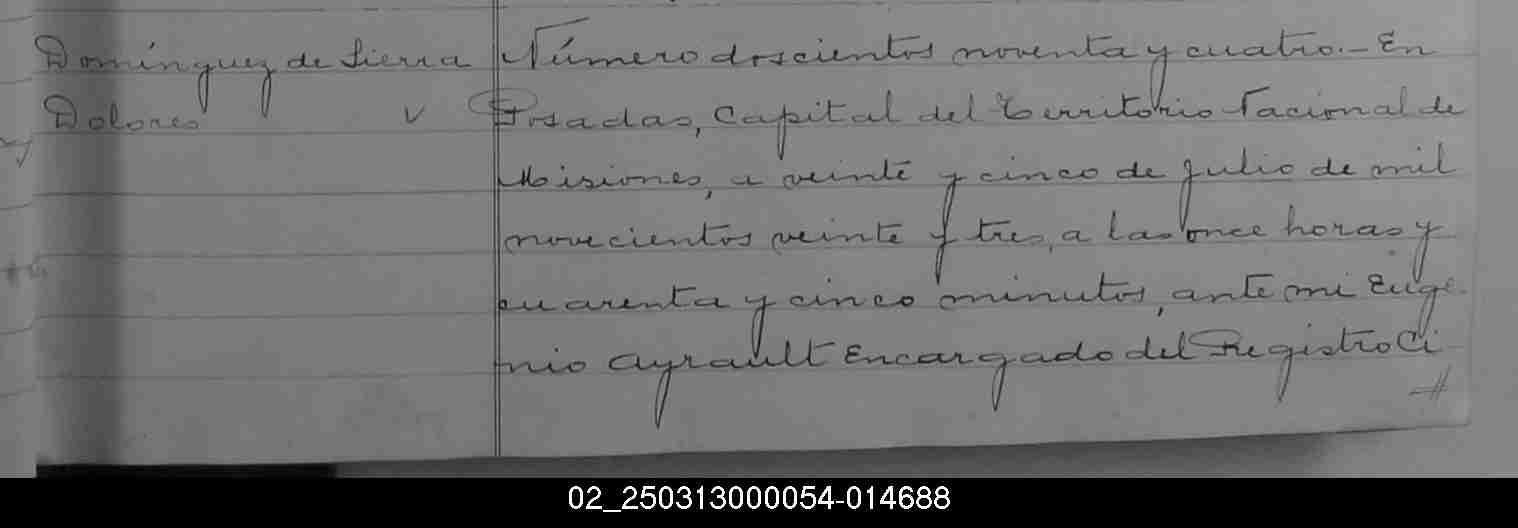 Domínguez de Sierra
Dolores
Número doscientos noventa y cuatro.- En
Posadas, Capital del Territorio Nacional de
Misiones, a veinte y cinco de Julio de mil
novecientos veinte y tres, a las once horas y
cuarenta y cinco minutos, ante mi Euge
nio Ayrault Encargado del Registro Ci
02_250313000054-014688